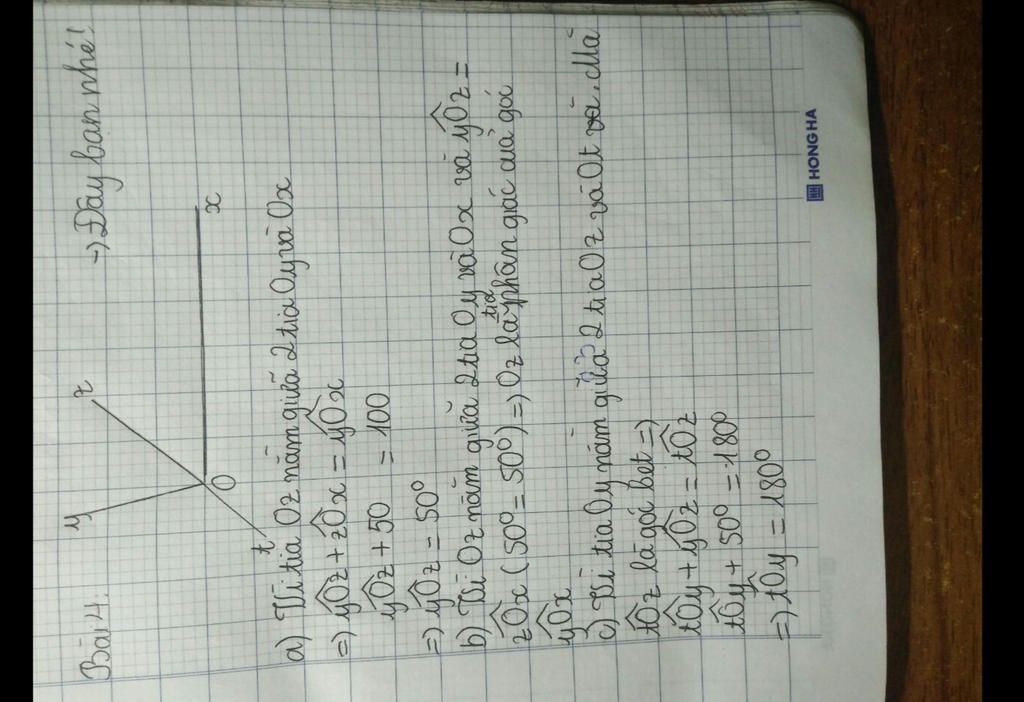 Bài 4:
→) Đây bạn nhé!
y
z
x
O
t
a) Vì tia Oz nằm giữa 2 tia Oy và Ox
=) yÔz + zÔx = yÔx
yÔz + 50 = 100
=) yÔz = 50°
b) Vì Oz nằm giữa 2 tia Oy và Ox và yÔz =
zÔx (50° = 50°) =) Oz là tia phân giác của góc
yÔx
c) Vì tia Oy nằm giữa 2 tia Oz và Ot và. Mà
tÔz là góc bẹt =)
tÔy + yÔz = tÔz
tÔy + 50° = 180°
=) tÔy = 180°
HONG HA